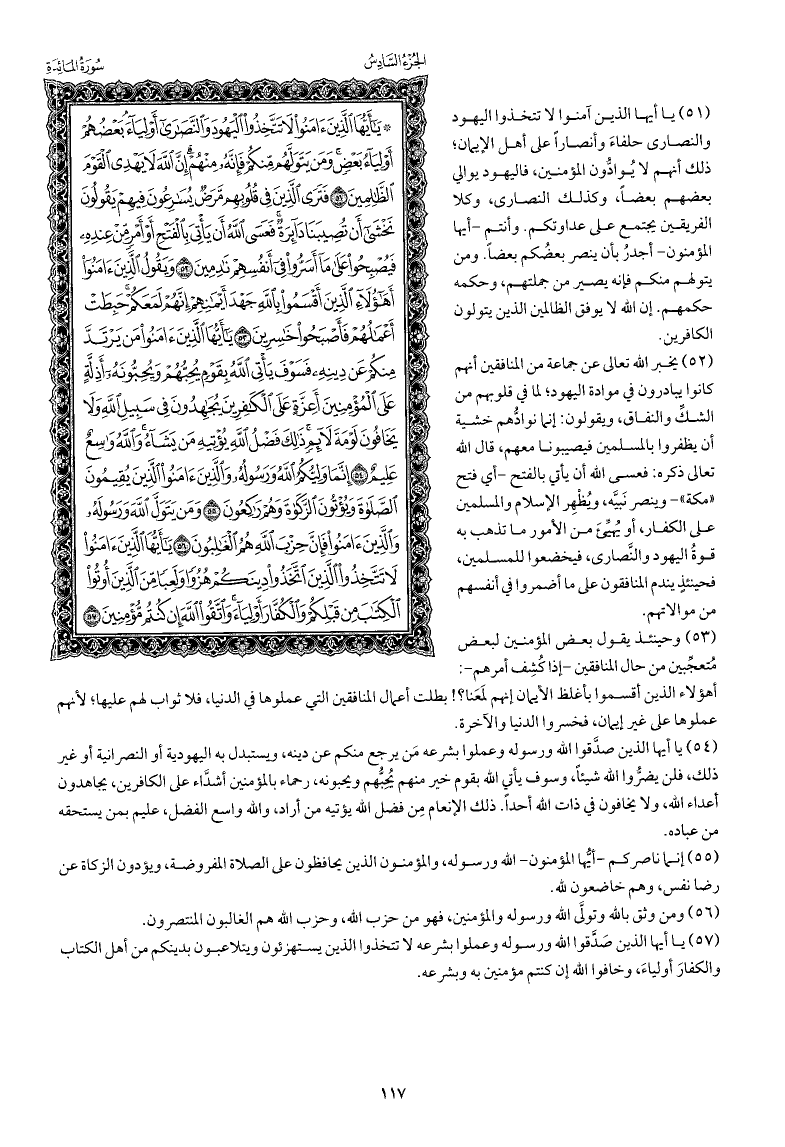 الجُزءُ السَّادِسُ
سُورَةُ المَائِدَةِ
* يَٰٓأَيُّهَا ٱلَّذِينَ ءَامَنُوا۟ لَا تَتَّخِذُوا۟ ٱلْيَهُودَ وَٱلنَّصَٰرَىٰٓ أَوْلِيَآءَۘ بَعْضُهُمْ
أَوْلِيَآءُ بَعْضٍۚ وَمَن يَتَوَلَّهُم مِّنكُمْ فَإِنَّهُۥ مِنْهُمْۗ إِنَّ ٱللَّهَ لَا يَهْدِى ٱلْقَوْمَ
ٱلظَّٰلِمِينَ ٥١ فَتَرَى ٱلَّذِينَ فِى قُلُوبِهِم مَّرَضٌ يُسَٰرِعُونَ فِيهِمْ يَقُولُونَ
نَخْشَىٰٓ أَن تُصِيبَنَا دَآئِرَةٌۚ فَعَسَى ٱللَّهُ أَن يَأْتِىَ بِٱلْفَتْحِ أَوْ أَمْرٍ مِّنْ عِندِهِۦ
فَيُصْبِحُوا۟ عَلَىٰ مَآ أَسَرُّوا۟ فِىٓ أَنفُسِهِمْ نَٰدِمِينَ ٥٢ وَيَقُولُ ٱلَّذِينَ ءَامَنُوٓا۟
أَهَٰٓؤُلَآءِ ٱلَّذِينَ أَقْسَمُوا۟ بِٱللَّهِ جَهْدَ أَيْمَٰنِهِمْۙ إِنَّهُمْ لَمَعَكُمْۚ حَبِطَتْ
أَعْمَٰلُهُمْ فَأَصْبَحُوا۟ خَٰسِرِينَ ٥٣ يَٰٓأَيُّهَا ٱلَّذِينَ ءَامَنُوا۟ مَن يَرْتَدَّ
مِنكُمْ عَن دِينِهِۦ فَسَوْفَ يَأْتِى ٱللَّهُ بِقَوْمٍ يُحِبُّهُمْ وَيُحِبُّونَهُۥٓ أَذِلَّةٍ
عَلَى ٱلْمُؤْمِنِينَ أَعِزَّةٍ عَلَى ٱلْكَٰفِرِينَ يُجَٰهِدُونَ فِى سَبِيلِ ٱللَّهِ وَلَا
يَخَافُونَ لَوْمَةَ لَآئِمٍۚ ذَٰلِكَ فَضْلُ ٱللَّهِ يُؤْتِيهِ مَن يَشَآءُۚ وَٱللَّهُ وَٰسِعٌ
عَلِيمٌ ٥٤ إِنَّمَا وَلِيُّكُمُ ٱللَّهُ وَرَسُولُهُۥ وَٱلَّذِينَ ءَامَنُوا۟ ٱلَّذِينَ يُقِيمُونَ
ٱلصَّلَوٰةَ وَيُؤْتُونَ ٱلزَّكَوٰةَ وَهُمْ رَٰكِعُونَ ٥٥ وَمَن يَتَوَلَّ ٱللَّهَ وَرَسُولَهُۥ
وَٱلَّذِينَ ءَامَنُوا۟ فَإِنَّ حِزْبَ ٱللَّهِ هُمُ ٱلْغَٰلِبُونَ ٥٦ يَٰٓأَيُّهَا ٱلَّذِينَ ءَامَنُوا۟
لَا تَتَّخِذُوا۟ ٱلَّذِينَ ٱتَّخَذُوا۟ دِينَكُمْ هُزُوًا وَلَعِبًا مِّنَ ٱلَّذِينَ أُوتُوا۟
ٱلْكِتَٰبَ مِن قَبْلِكُمْ وَٱلْكُفَّارَ أَوْلِيَآءَۚ وَٱتَّقُوا۟ ٱللَّهَ إِن كُنتُم مُّؤْمِنِينَ ٥٧
(٥١) يا أيها الذين آمنوا لا تتخذوا اليهود
والنصارى حلفاءَ وأنصاراً على أهل الإيمان؛
ذلك أنهم لا يُوادُّون المؤمنين، فاليهود يوالي
بعضهم بعضاً، وكذلك النصارى، وكلا
الفريقين يجتمع على عداوتكم. وأنتم –أيها
المؤمنون– أجدرُ بأن ينصر بعضُكم بعضاً. ومن
يتولهم منكم فإنه يصير من جملتهم، وحكمه
حكمهم. إن الله لا يوفق الظالمين الذين يتولون
الكافرين.
(٥٢) يخبر الله تعالى عن جماعة من المنافقين أنهم
كانوا يبادرون في موادة اليهود؛ لما في قلوبهم من
الشكِّ والنفاق، ويقولون: إنما نوادُّهم خشية
أن يظفروا بالمسلمين فيصيبونا معهم، قال الله
تعالى ذكره: فعسى الله أن يأتي بالفتح –أي فتح
«مكة»– وينصر نَبيَّه، ويُظْهِر الإسلام والمسلمين
على الكفار، أو يُهيِّئَ من الأمور ما تذهب به
قوةُ اليهود والنَّصارى، فيخضعوا للمسلمين،
فحينئذٍ يندم المنافقون على ما أضمروا في أنفسهم
من موالاتهم.
(٥٣) وحينئذ يقول بعض المؤمنين لبعض
مُتعجِّبين من حال المنافقين –إذا كُشِف أمرهم–:
أهؤلاء الذين أقسموا بأغلظ الأيمان إنهم لمَعَنا؟! بطلت أعمال المنافقين التي عملوها في الدنيا، فلا ثواب لهم عليها؛ لأنهم
عملوها على غير إيمان، فخسروا الدنيا والآخرة.
(٥٤) يا أيها الذين صدَّقوا الله ورسوله وعملوا بشرعه مَن يرجع منكم عن دينه، ويستبدل به اليهودية أو النصرانية أو غير
ذلك، فلن يضرُّوا الله شيئاً، وسوف يأتي الله بقوم خير منهم يُحِبُّهم ويحبونه، رحماء بالمؤمنين أشدَّاء على الكافرين، يجاهدون
أعداء الله، ولا يخافون في ذات الله أحداً. ذلك الإنعام مِن فضل الله يؤتيه من أراد، والله واسع الفضل، عليم بمن يستحقه
من عباده.
(٥٥) إنما ناصركم –أيُّها المؤمنون– الله ورسوله، والمؤمنون الذين يحافظون على الصلاة المفروضة، ويؤدون الزكاة عن
رضا نفس، وهم خاضعون لله.
(٥٦) ومن وثق بالله وتولَّى الله ورسوله والمؤمنين، فهو من حزب الله، وحزب الله هم الغالبون المنتصرون.
(٥٧) يا أيها الذين صَدَّقوا الله ورسوله وعملوا بشرعه لا تتخذوا الذين يستهزئون ويتلاعبون بدينكم من أهل الكتاب
والكفارَ أولياءَ، وخافوا الله إن كنتم مؤمنين به وبشرعه.
١١٧